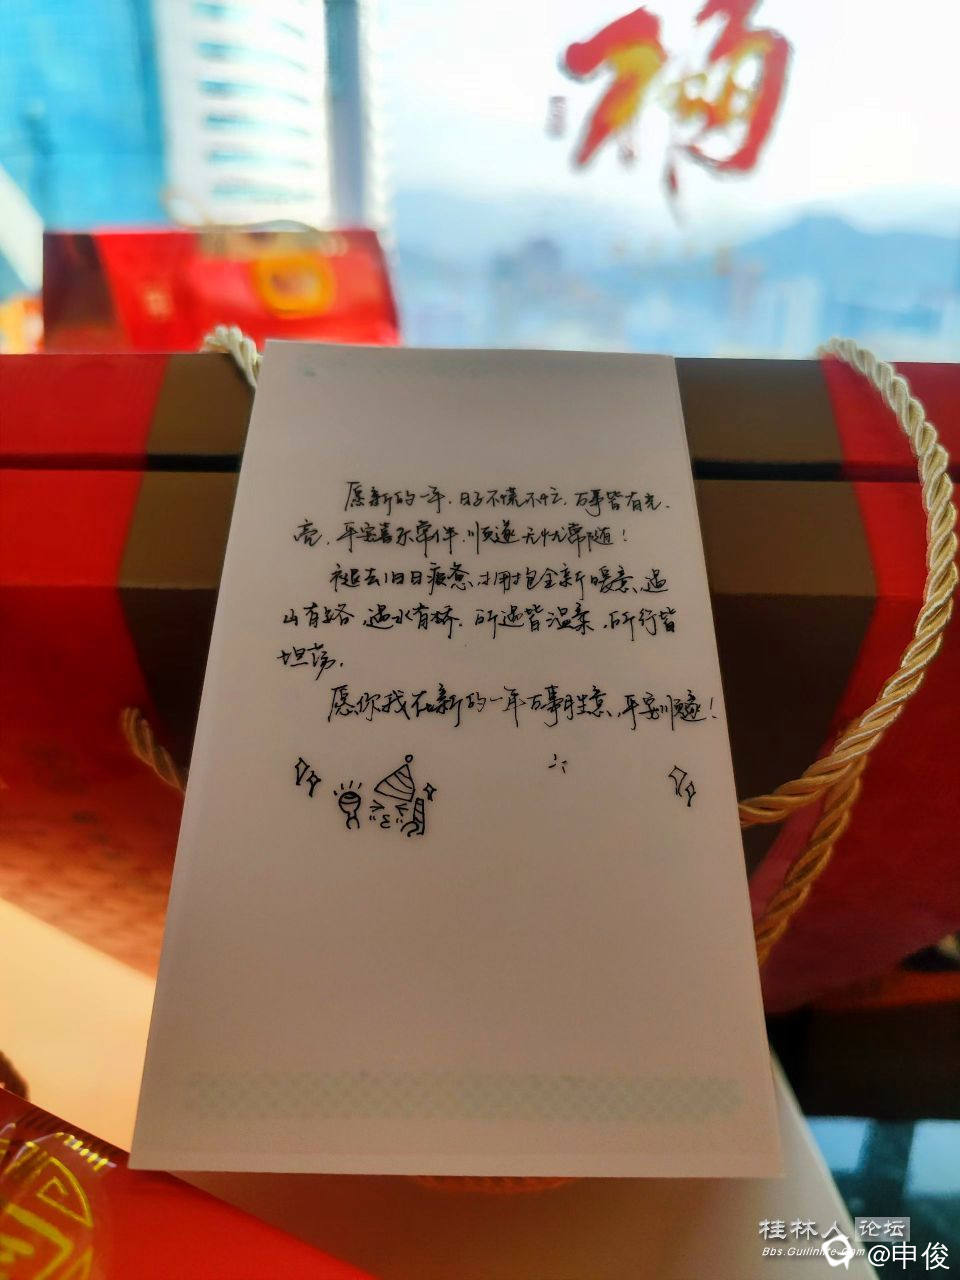 福
愿新的一年，日子不慌不忙，万事皆有光
亮，平安喜乐常伴，顺遂无忧常随！
褪去旧日疲惫，拥抱全新暖意，遇
山有路，遇水有桥，所遇皆温柔，所行皆
坦荡，
愿你我在新的一年万事胜意，平安顺遂！
桂林人论坛
Bbs.Guilinlife.Com
@申俊